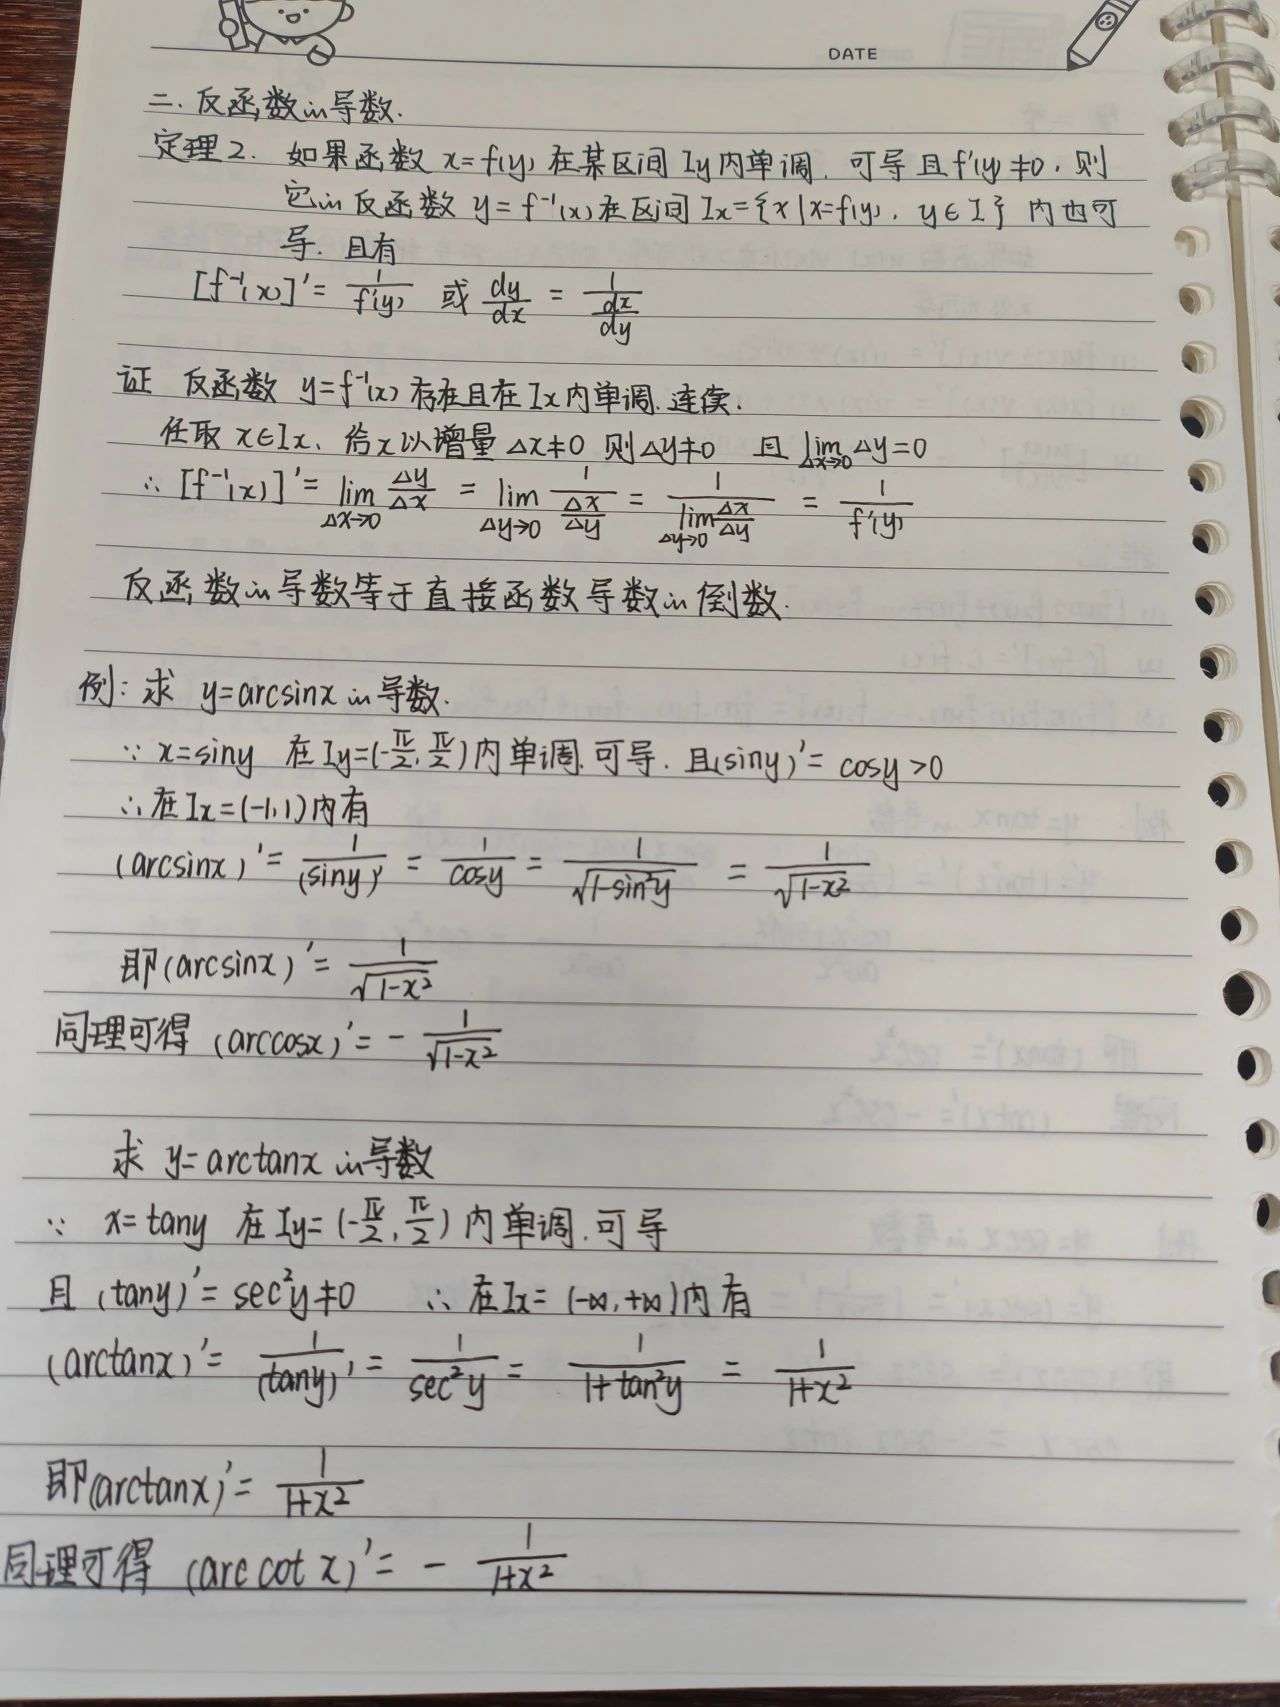 DATE
二. 反函数的导数.
定理2. 如果函数 x=f(y) 在某区间 Iy 内单调. 可导且 f'(y)≠0. 则
它的反函数 y=f⁻¹(x) 在区间 Ix={x|x=f(y). y∈I} 内也可
导. 且有
[f⁻¹(x)]' = 1/f'(y) 或 dy/dx = 1/(dx/dy)
证 反函数 y=f⁻¹(x) 存在且在 Ix 内单调. 连续.
任取 x∈Ix. 给 x 以增量 Δx≠0 则 Δy≠0 且 lim_{Δx→0} Δy=0
∴ [f⁻¹(x)]' = lim_{Δx→0} Δy/Δx = lim_{Δy→0} 1/(Δx/Δy) = 1/(lim_{Δy→0} Δx/Δy) = 1/f'(y)
反函数的导数等于直接函数导数的倒数.
例: 求 y=arcsinx 的导数.
∵ x=siny 在 Iy=(-π/2, π/2) 内单调. 可导. 且(siny)' = cosy>0
∴ 在 Ix=(-1,1) 内有
(arcsinx)' = 1/(siny)' = 1/cosy = 1/√(1-sin²y) = 1/√(1-x²)
即 (arcsinx)' = 1/√(1-x²)
同理可得 (arccosx)' = - 1/√(1-x²)
求 y=arctanx 的导数
∵ x=tany 在 Iy=(-π/2, π/2) 内单调. 可导
且 (tany)' = sec²y≠0 ∴ 在 Ix=(-∞,+∞)内有
(arctanx)' = 1/(tany)' = 1/sec²y = 1/(1+tan²y) = 1/(1+x²)
即(arctanx)' = 1/(1+x²)
同理可得 (arc cot x)' = - 1/(1+x²)